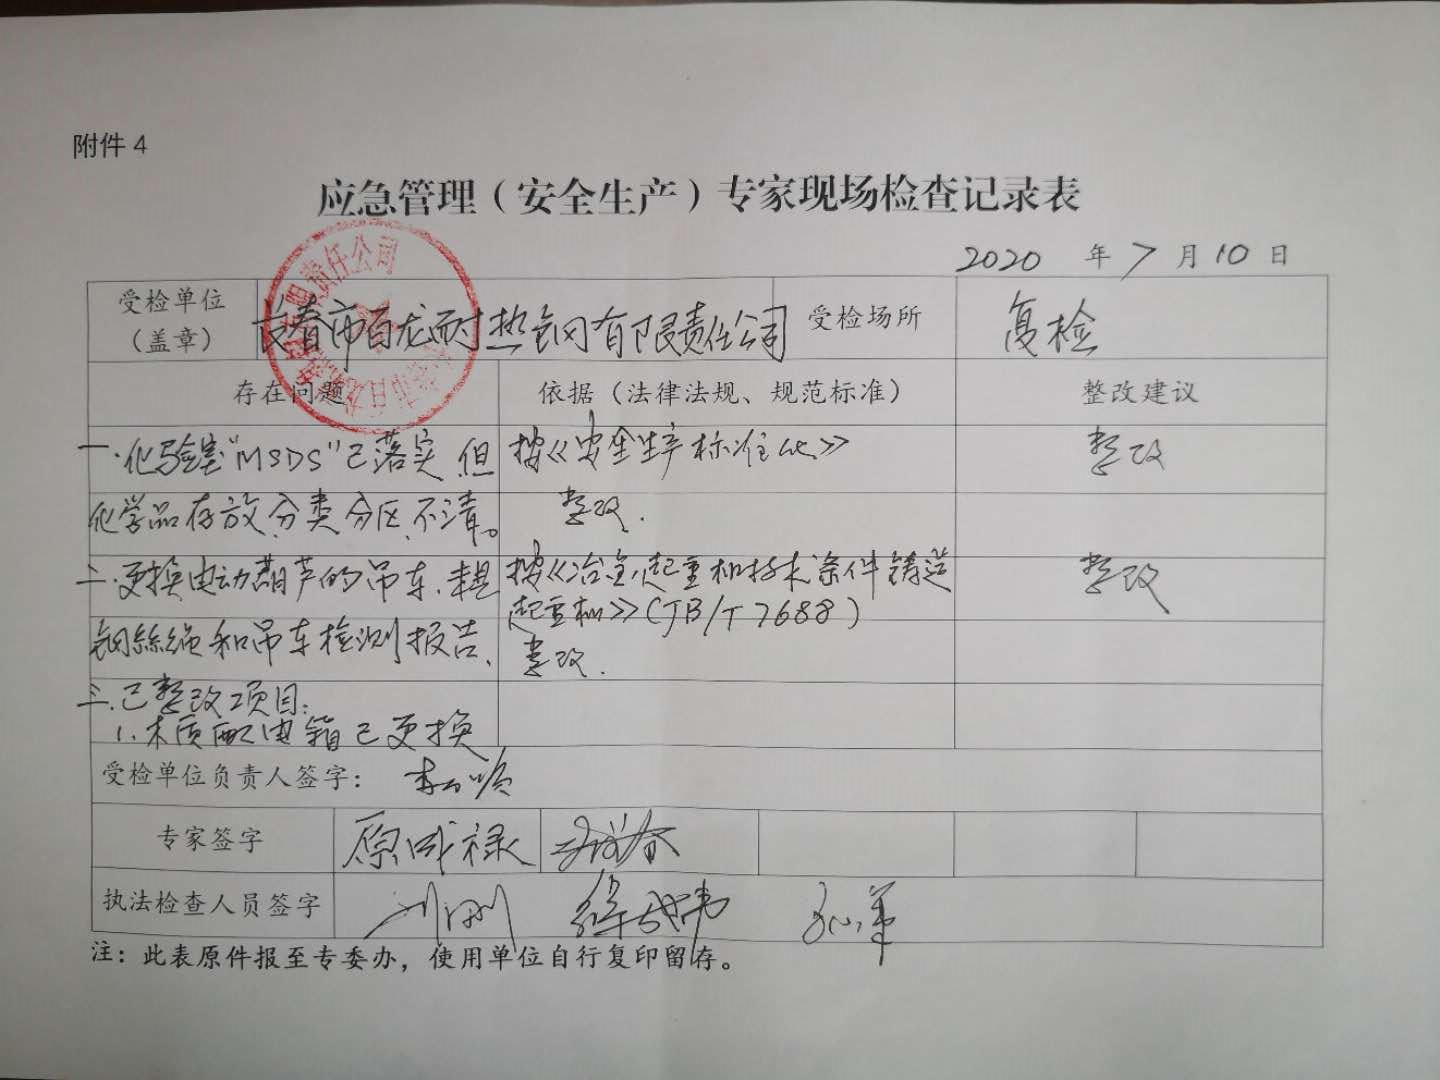 附件 4
应急管理（安全生产）专家现场检查记录表
2020 年 7 月 10 日
受检单位
（盖章）
长春市百龙耐热钢有限责任公司
受检场所
复检
存在问题
依据（法律法规、规范标准）
整改建议
一.化验室"MSDS"已落实,但
化学品存放,分类分区,不清。
按《安全生产标准化》
整改.
整改
二.更换电动葫芦的吊车.未见
钢丝绳和吊车检测报告、
按《冶金起重机技术条件铸造
起重机》(JB/T 7688)
整改.
整改
三.已整改项目:
1.木质配电箱已更换
受检单位负责人签字：
专家签字
原成禄
执法检查人员签字
刘刚
注：此表原件报至专委办，使用单位自行复印留存。